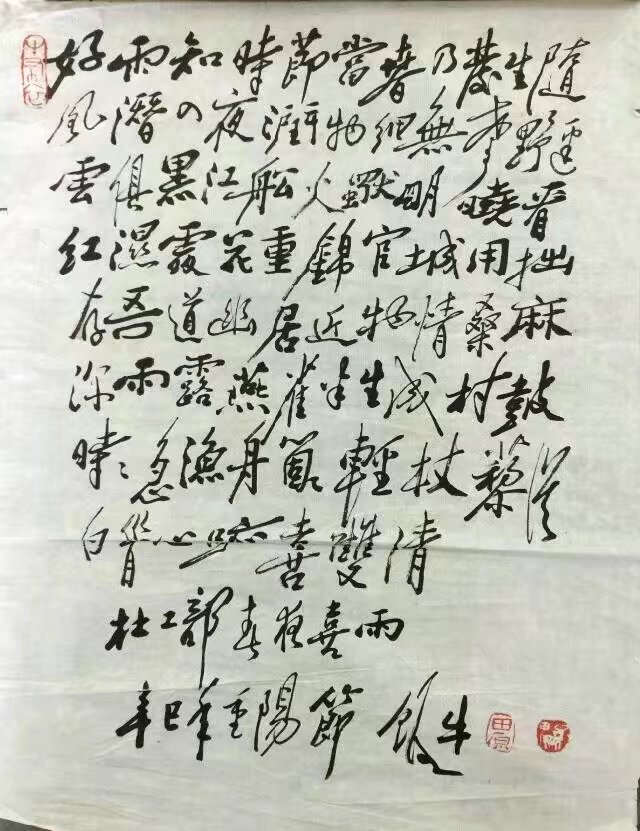 好雨知時節當春乃發生隨
風潛入夜潤物細無聲野逕
雲俱黑江船火獨明曉看
紅濕處花重錦官城用拙
存吾道幽居近物情桑麻
深雨露燕雀半生成村鼓
時〻急漁舟箇〻輕杖藜從
白首心跡喜雙清
杜工部春夜喜雨
辛巳年重陽節 飯牛
田原